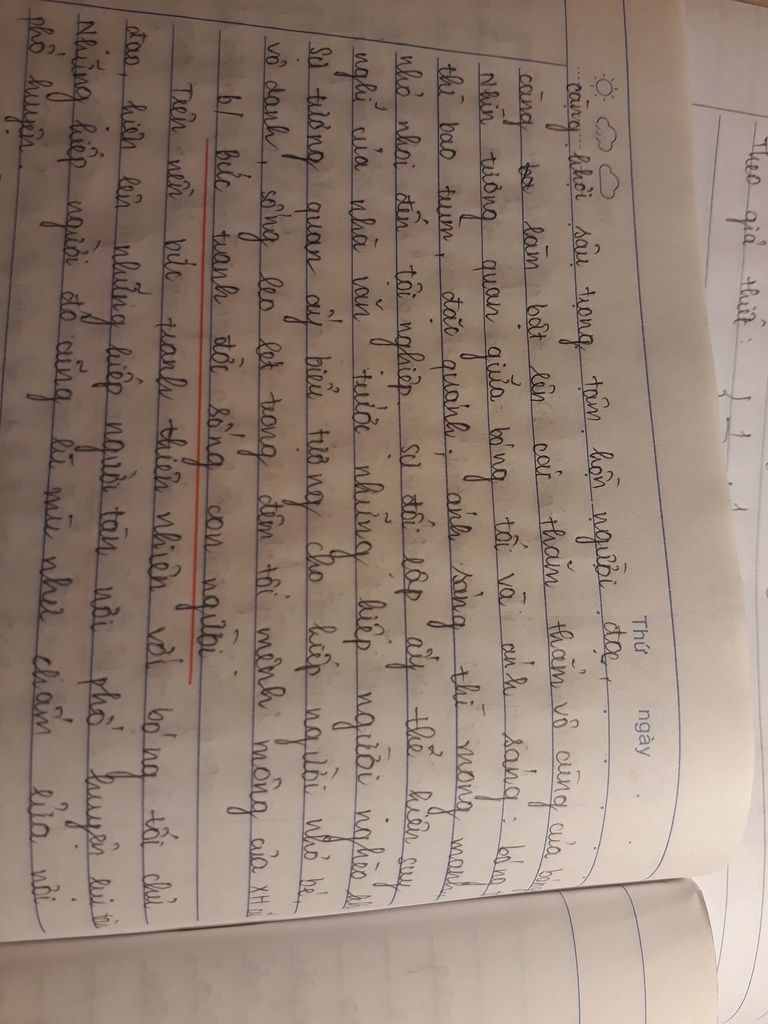 Thứ ngày
càng khơi sâu trong tâm hồn người đọc,
càng làm bật lên cái thăm thẳm vô cùng của
Nhìn tương quan giữa bóng tối và ánh sáng: bóng
thì bao trùm, đặc quánh; ánh sáng thì mong manh
nhỏ nhoi đến tội nghiệp. sự đối lập ấy thể hiện suy
nghĩ của nhà văn trước những kiếp người nghèo
Sự tương quan ấy biểu tượng cho kiếp người nhỏ bé,
vô danh, sống leo lét trong đêm tối mênh mông của XH
b/ bức tranh đời sống con người
Trên nền bức tranh thiên nhiên với bóng tối chủ
đạo, hiện lên những kiếp người tàn nơi phố huyện
Những kiếp người đó cũng lù mù như chấm lửa nơi
phố huyện.
Theo giả thiết: